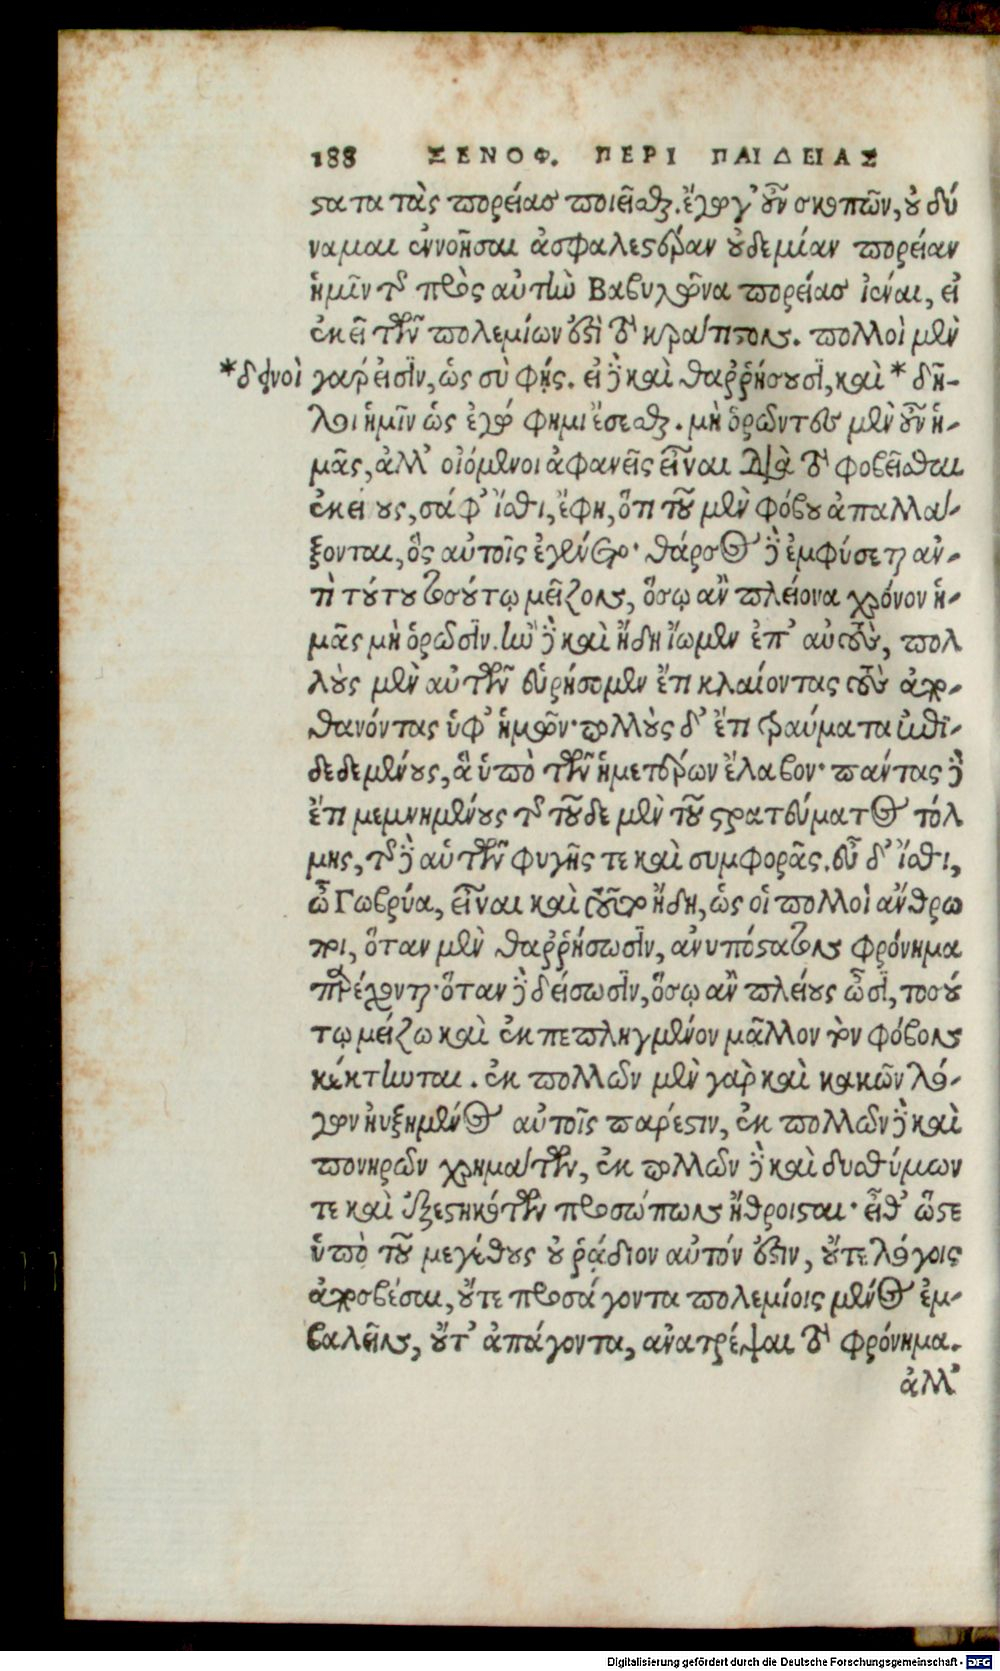 188 ΞΕΝΟΦ. ΠΕΡΙ ΠΑΙΔΕΙΑΣ
στατα τὰς πορείας ποιεῖσθαι. ἐγὼ γ' οὖν σκοπῶν, οὐ δύ
ναμαι ἐννοῆσαι ἀσφαλεστέραν οὐδεμίαν πορείαν
ἡμῖν τῆς πρὸς αὐτὴν Βαβυλῶνα πορείας ἰέναι, εἰ
ἐκεῖ τῶν πολεμίων ἐστὶ τὸ κράτιστον. πολλοὶ μὲν
*δεινοὶ γάρ εἰσιν, ὡς σὺ φῄς. εἰ δὲ καὶ θαῤῥήσουσι, καὶ * δῆ-
λοι ἡμῖν ὡς ἐγώ φημι ἔσεσθαι. μὴ ὁρῶντες μὲν οὖν ἡ-
μᾶς, ἀλλ' οἰόμενοι ἀφανεῖς εἶναι διὰ τὸ φοβεῖσθαι
ἐκείνους, σάφ' ἴσθι, ἔφη, ὅτι τοῦ μὲν φόβου ἀπαλλά-
ξονται, ὃς αὐτοῖς ἐγένετο· θάρσος δὲ ἐμφύσεται ἀν-
τὶ τούτου τοσούτῳ μεῖζον, ὅσῳ ἂν πλείονα χρόνον ἡ-
μᾶς μὴ ὁρῶσιν. ἢν δὲ καὶ ἤδη ἴωμεν ἐπ' αὐτοὺς, πολ
λοὺς μὲν αὐτῶν εὑρήσομεν ἔτι κλαίοντας τοὺς ἀπο-
θανόντας ὑφ' ἡμῶν· πολλοὺς δ' ἔτι τραύματα ἐπιδε-
δεμένους, ἃ ὑπὸ τῶν ἡμετέρων ἔλαβον· πάντας δὲ
ἔτι μεμνημένους τῆς τοῦδε μὲν τοῦ στρατεύματος τόλ
μης, τῆς δὲ αὑτῶν φυγῆς τε καὶ συμφορᾶς. εὖ δ' ἴσθι,
ὦ Γωβρύα, εἶναι καὶ τοῦτο ἤδη, ὡς οἱ πολλοὶ ἄνθρω
ποι, ὅταν μὲν θαῤῥήσωσιν, ἀνυπόστατον φρόνημα
παρέχονται· ὅταν δὲ δείσωσιν, ὅσῳ ἂν πλείους ὦσι, τοσού
τῳ μείζω καὶ ἐκπεπληγμένον μᾶλλον τὸν φόβον
κέκτηνται. ἐκ πολλῶν μὲν γὰρ καὶ κακῶν λό-
γων ηὐξημένος αὐτοῖς πάρεστιν, ἐκ πολλῶν δὲ καὶ
πονηρῶν χρημάτων, ἐκ πολλῶν δὲ καὶ δυσθύμων
τε καὶ ἐξεστηκότων προσώπων ἤθροισται· εἶθ' ὥστε
ὑπὸ τοῦ μεγέθους οὐ ῥᾴδιον αὐτόν ἐστιν, οὔτε λόγοις
ἀποσβέσαι, οὔτε προσάγοντα πολεμίοις μένος ἐμ-
βαλεῖν, οὔτ' ἀπάγοντα, ἀνατρέψαι τὸ φρόνημα.
ἀλλ'
Digitalisierung gefördert durch die Deutsche Forschungsgemeinschaft - DFG